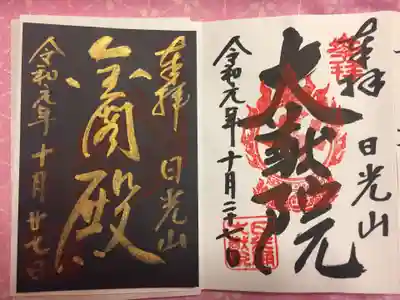 奉拝 日光山
大猷院
令和元年十月二十七日
奉拝 日光山
金閣殿
令和元年十月廿七日